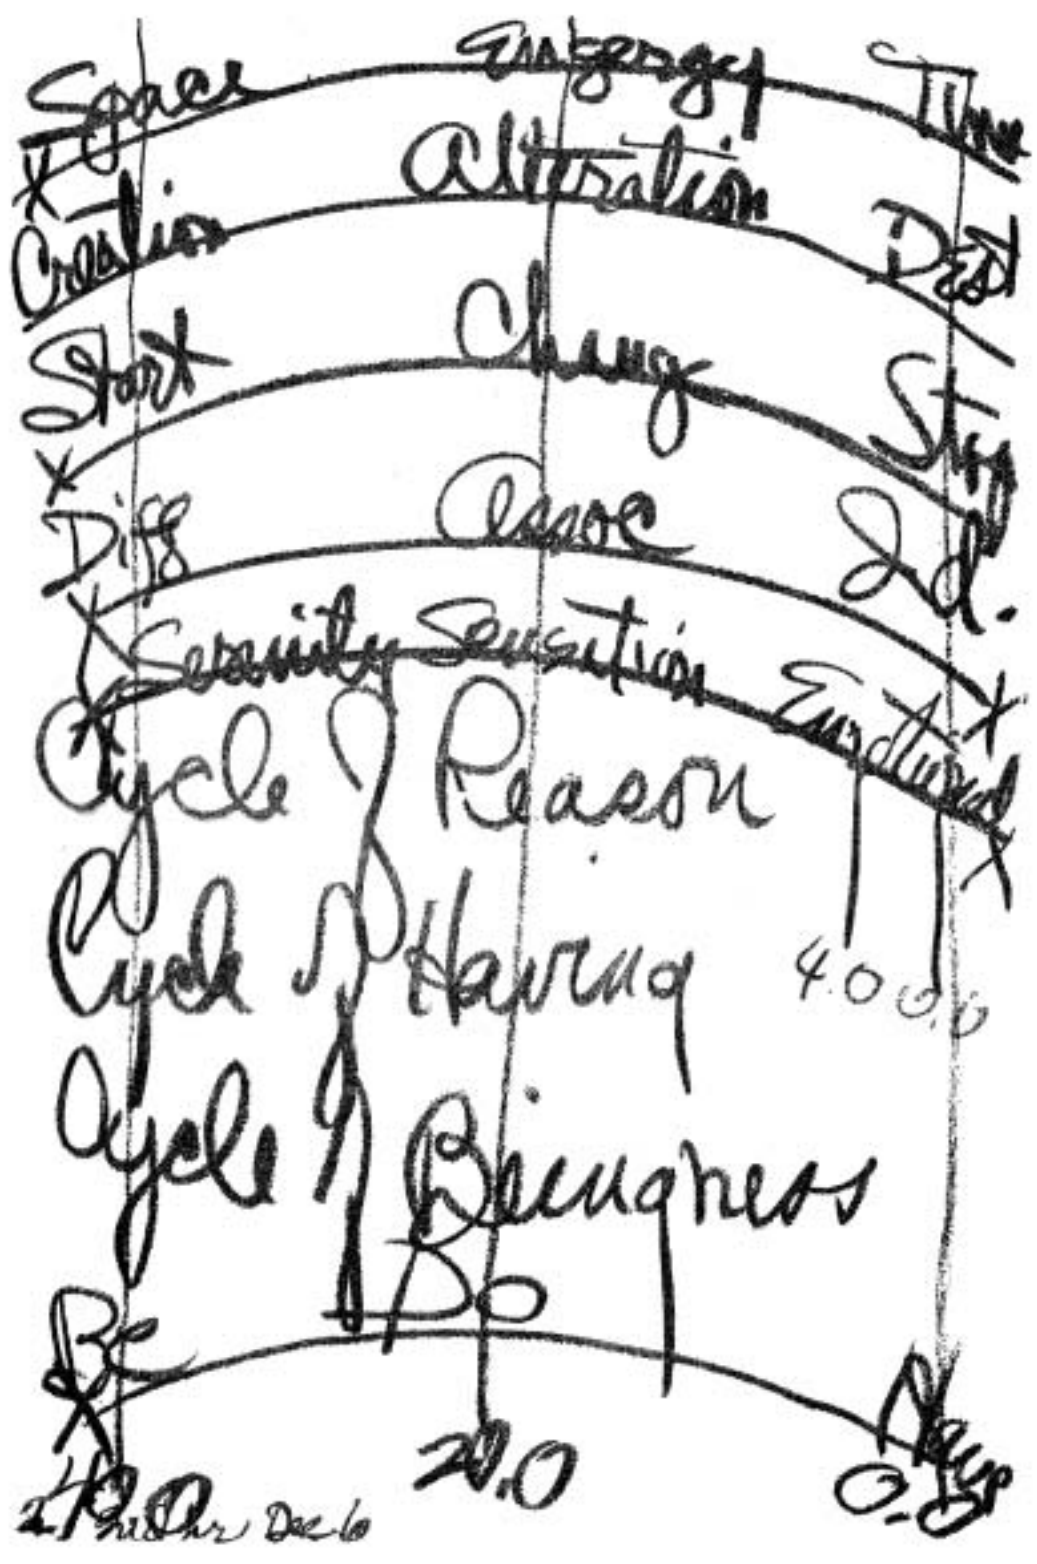 Space Energy Time
Creation Alteration Dest
Start Change Stop
Diff Assoc Id.
Serenity Sensation Enturbul
Cycle of Reason
Cycle of Having
4.0 0.0
Cycle of Beingness
Be Do Have
40.0 20.0 0.0
2nd hr Dec 6